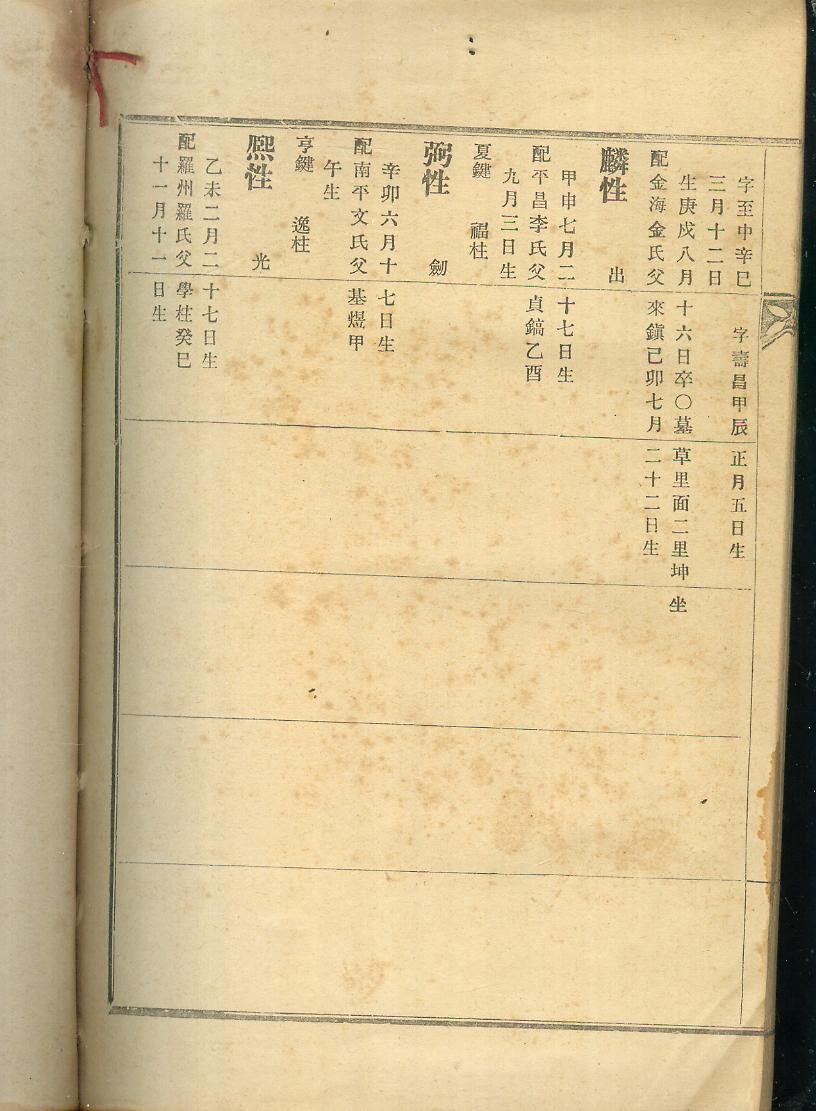 字至中辛巳　字壽昌甲辰正月五日生
三月十二日
生庚戌八月十六日卒〇墓草里面二里坤坐
配金海金氏父來鎭己卯七月二十二日生
麟性　出
甲申七月二十七日生
配平昌李氏父貞鎬乙酉
九月三日生
夏鍵　福柱
弼性　劍
辛卯六月十七日生
配南平文氏父基煜甲
午生
亨鍵　逸柱
熙性　光
乙未二月二十七日生
配羅州羅氏父學柱癸巳
十一月十一日生